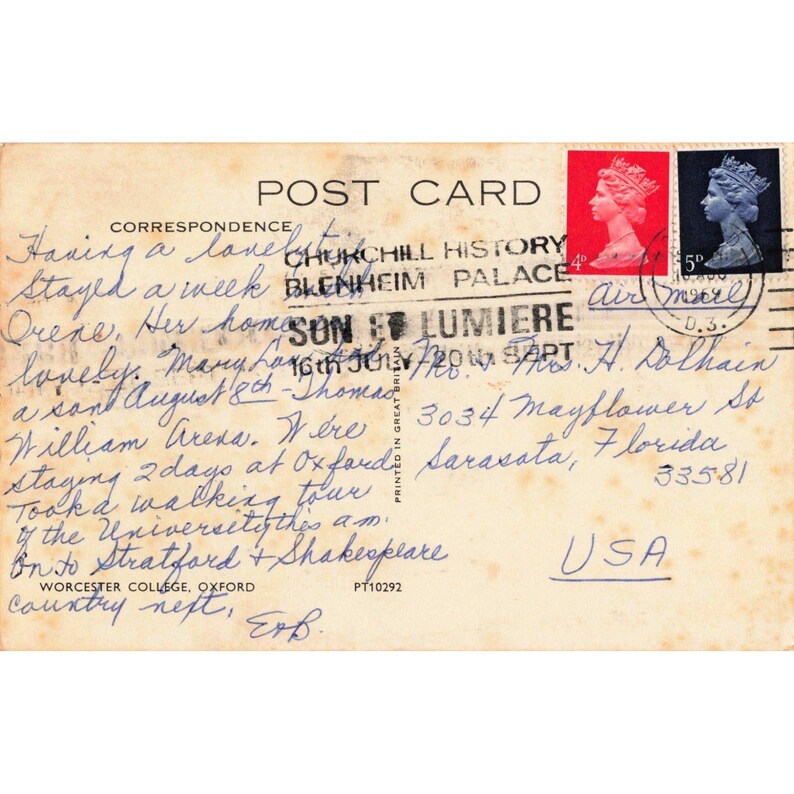 POST CARD
CORRESPONDENCE
Having a lovely time
Stayed a week with
Orene. Her home is
lovely. Mary Lou had
a son August 8th - Thomas
William Arena. We're
staying 2 days at Oxford
Took a walking tour
of the University this a.m.
On to Stratford & Shakespeare
country next.
E & B.
WORCESTER COLLEGE, OXFORD
PT10292
PRINTED IN GREAT BRITAIN
CHURCHILL HISTORY
BLENHEIM PALACE
SON ET LUMIERE
16th JULY 20th SEPT
4D
5D
AUG
196
D.3.
Air Mail
Mr. & Mrs. H. Dolhain
3034 Mayflower St
Sarasota, Florida
33581
USA